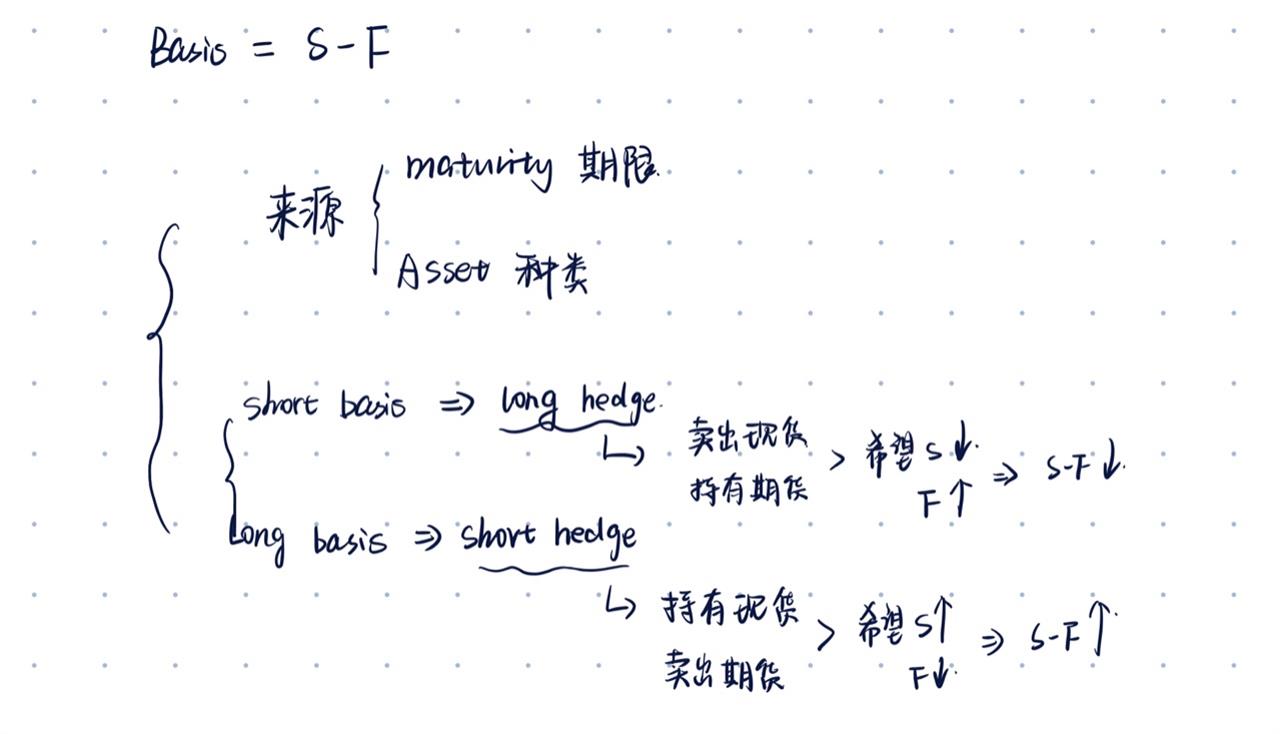 Basis = S-F
maturity 期限
来源
Asset 种类
short basis ⇒ long hedge.
卖出现货 > 希望 S↓.
持有期货 F↑ ⇒ S-F↓.
Long basis ⇒ short hedge
持有现货 > 希望 S↑
卖出期货 F↓. ⇒ S-F↑.